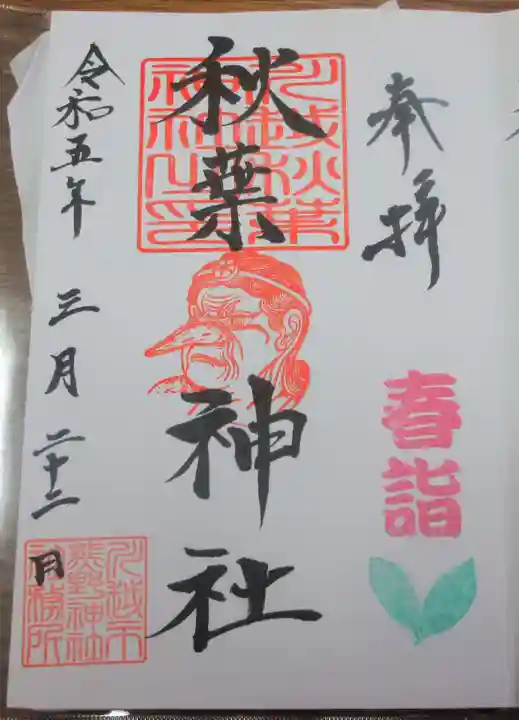 奉拝
春詣
川越秋葉神社之印
秋葉神社
令和五年三月二十二日
川越市熊野神社社務所